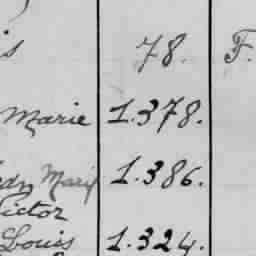 78. F.
Marie 1.378.
Mary 1.386.
Victor
Louis 1.324.